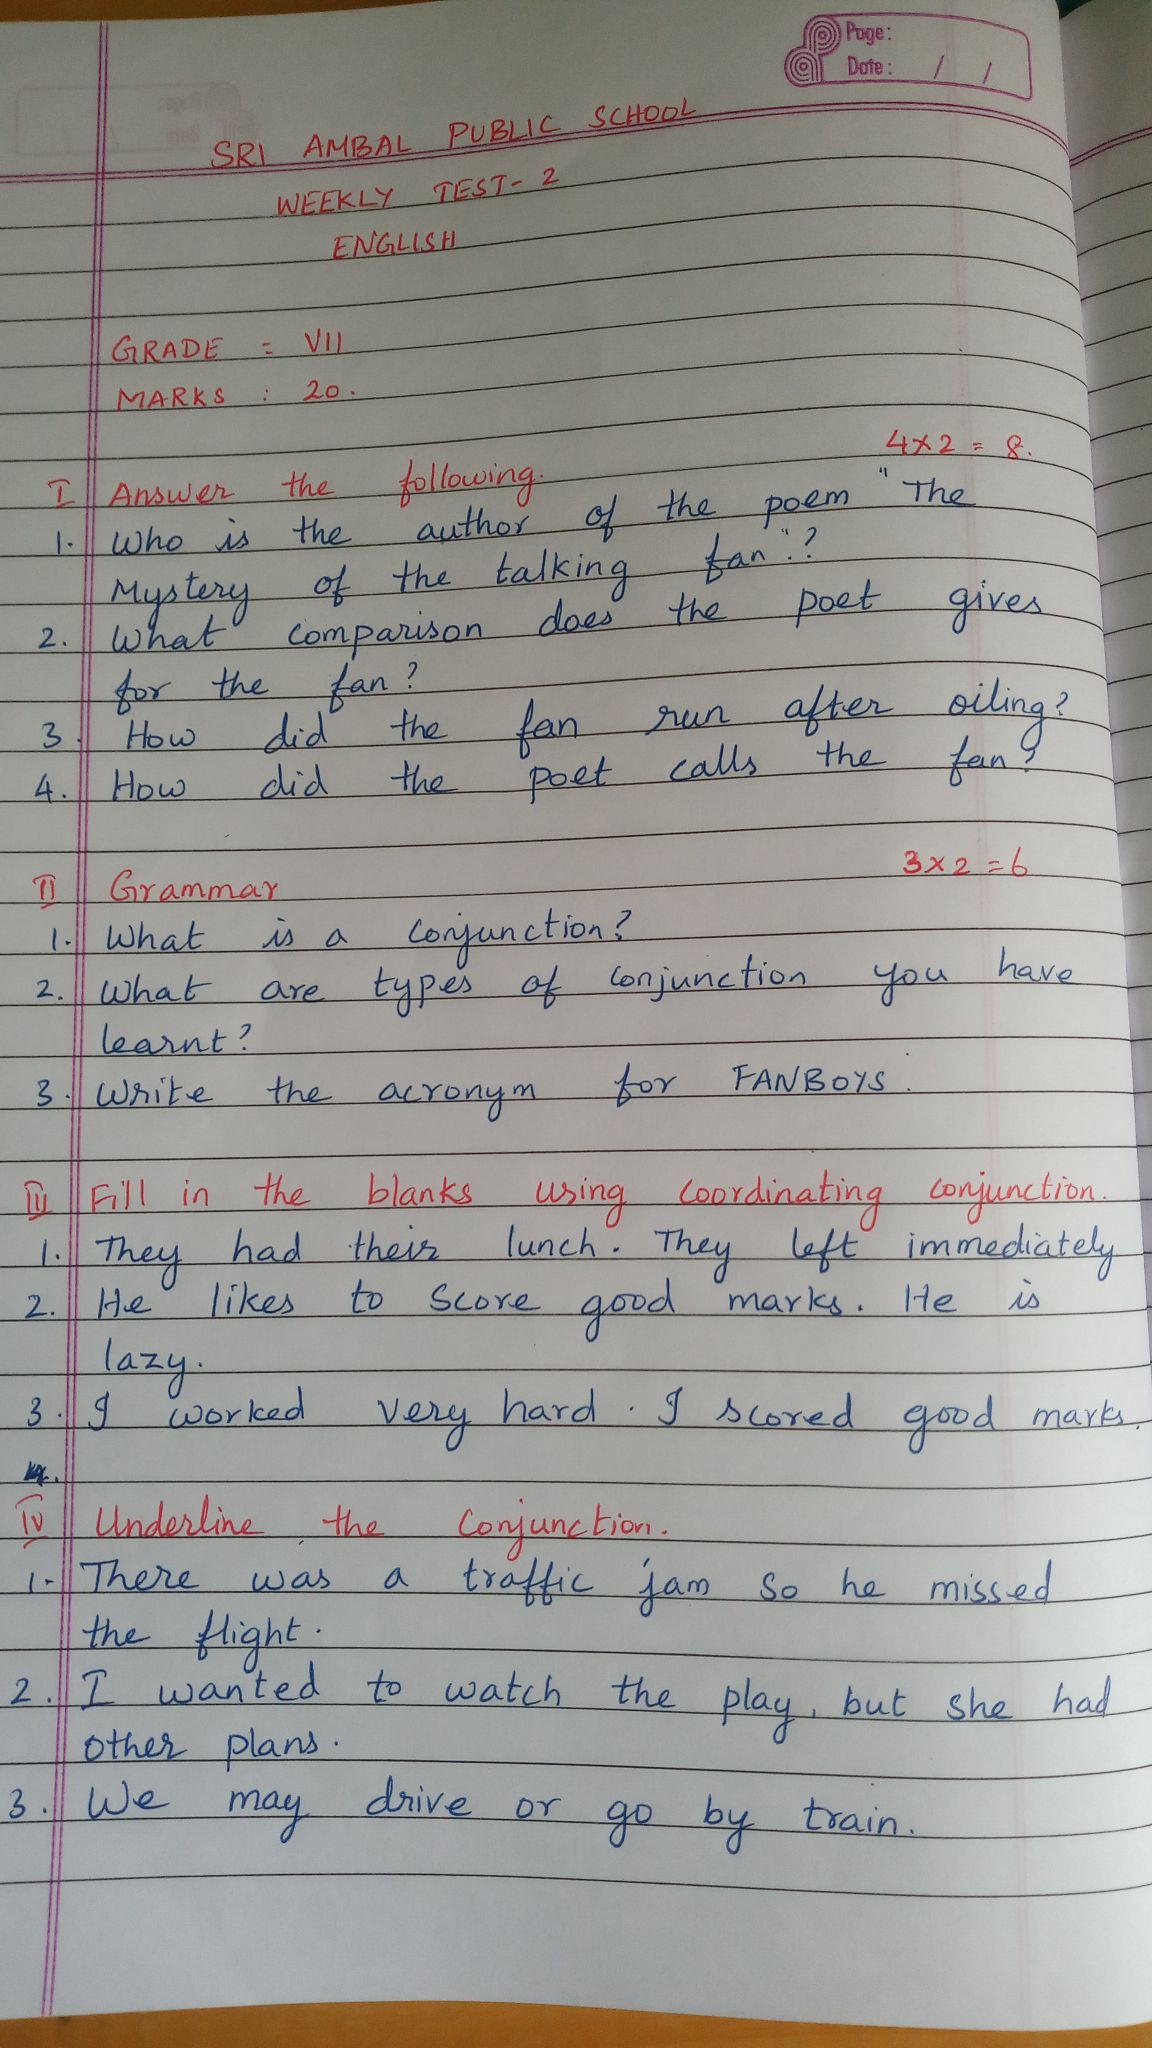 Page:
Date: / /
SRI AMBAL PUBLIC SCHOOL
WEEKLY TEST-2
ENGLISH
GRADE = VII
MARKS : 20.
4x2 = 8.
I Answer the following.
1. Who is the author of the poem "The
Mystery of the talking fan".?
2. What comparison does the poet gives
for the fan?
3. How did the fan run after oiling?
4. How did the poet calls the fan?
3x2 = 6
II Grammar
1. What is a conjunction?
2. What are types of conjunction you have
learnt?
3. Write the acronym for FANBOYS.
III Fill in the blanks using coordinating conjunction.
1. They had their lunch. They left immediately
2. He likes to score good marks. He is
lazy.
3. I worked very hard. I scored good marks.
IV Underline the conjunction.
1. There was a traffic jam so he missed
the flight.
2. I wanted to watch the play, but she had
other plans.
3. We may drive or go by train.